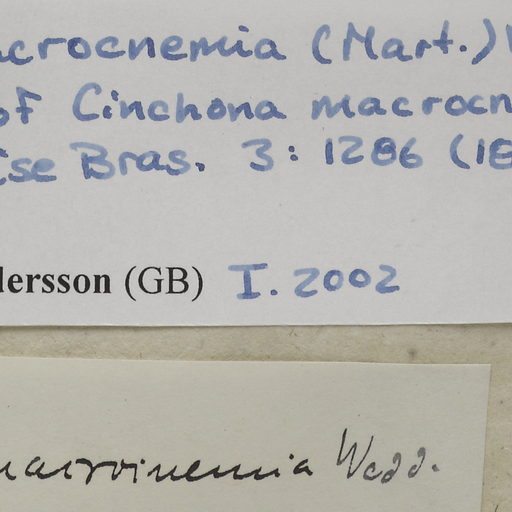 acrocnemia (Mart.)
of Cinchona macrocn
ese Bras. 3: 1286 (18
dersson (GB) I. 2002
macroinemia Wedd.